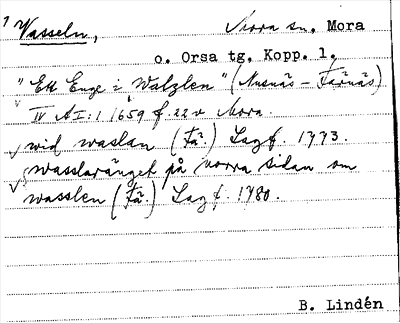 Vasseln, Mora sn, Mora
o. Orsa tg. Kopp. l.
"Ett Enge i Watzlen" (Nusnäs - Färnäs)
IV AI:1 1659 f. 22v Mora.
wid waslan (Fä.) Lagf. 1773.
wasslaränget på norra sidan om
wasslen (Fä.) Lagf. 1780.
B. Lindén